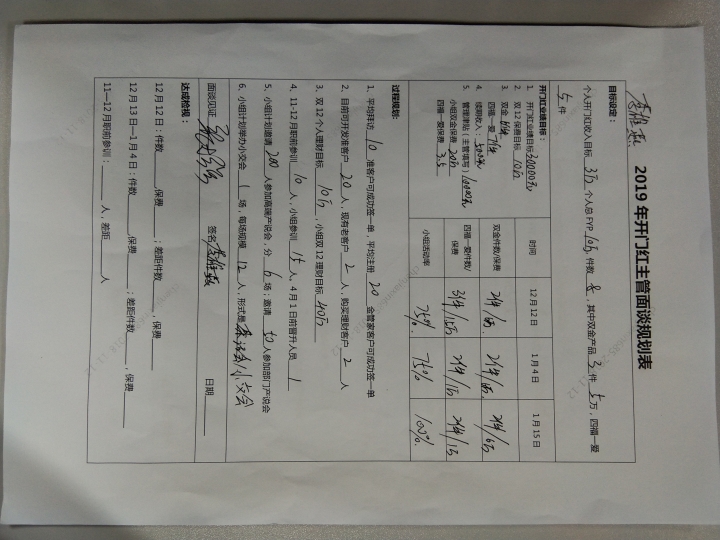 2019 年开门红主管面谈规划表
目标设定：
个人开门红收入目标 3万 个人总 FYP 10万，件数 8，其中双金产品 3 件 5 万，四福一爱
5 件
开门红业绩目标：
1. 开门红业绩目标 30000元
2. 双 12 保费目标 10万
3. 双金
四福一爱
4. 续期收入： 5000元
5. 管理津贴（主管填写） 10000元
小组双金保费 20万
四福一爱保费 3.5
时间 12 月 12 日 1 月 4 日 1 月 15 日
双金件数/保费 2件/ 2件/ 2件/6万
四福一爱件数/保费 3件/1.5万 2件/1万 2件/1万
小组活动率 75% 75% 100%
过程规划：
1、平均拜访 10 准客户可成功签一单，平均注册 20 金管家客户可成功签一单
2、目前可开发准客户 20 人，现有老客户 2 人，购买理财客户 2 人
3、双 12 个人理财目标 10万，小组双 12 理财目标 40万
4、11-12 月职前参训 10 人，小组参训 15 人，4 月 1 日前晋升人员 1
5、小组计划邀请 200 人参加高端产说会，分 6 场；邀请 50 人参加部门产说会
6、小组计划举办小交会 1 场，每场规模 12 人，形式是 茶话会/小交会
面谈见证 签名 日期
达成检视：
12 月 12 日：件数 ，保费 ；差距件数 ，保费
12 月 13 日—1 月 4 日：件数 ，保费 ；差距件数 ，保费
11—12 月职前参训： 人，差距 人